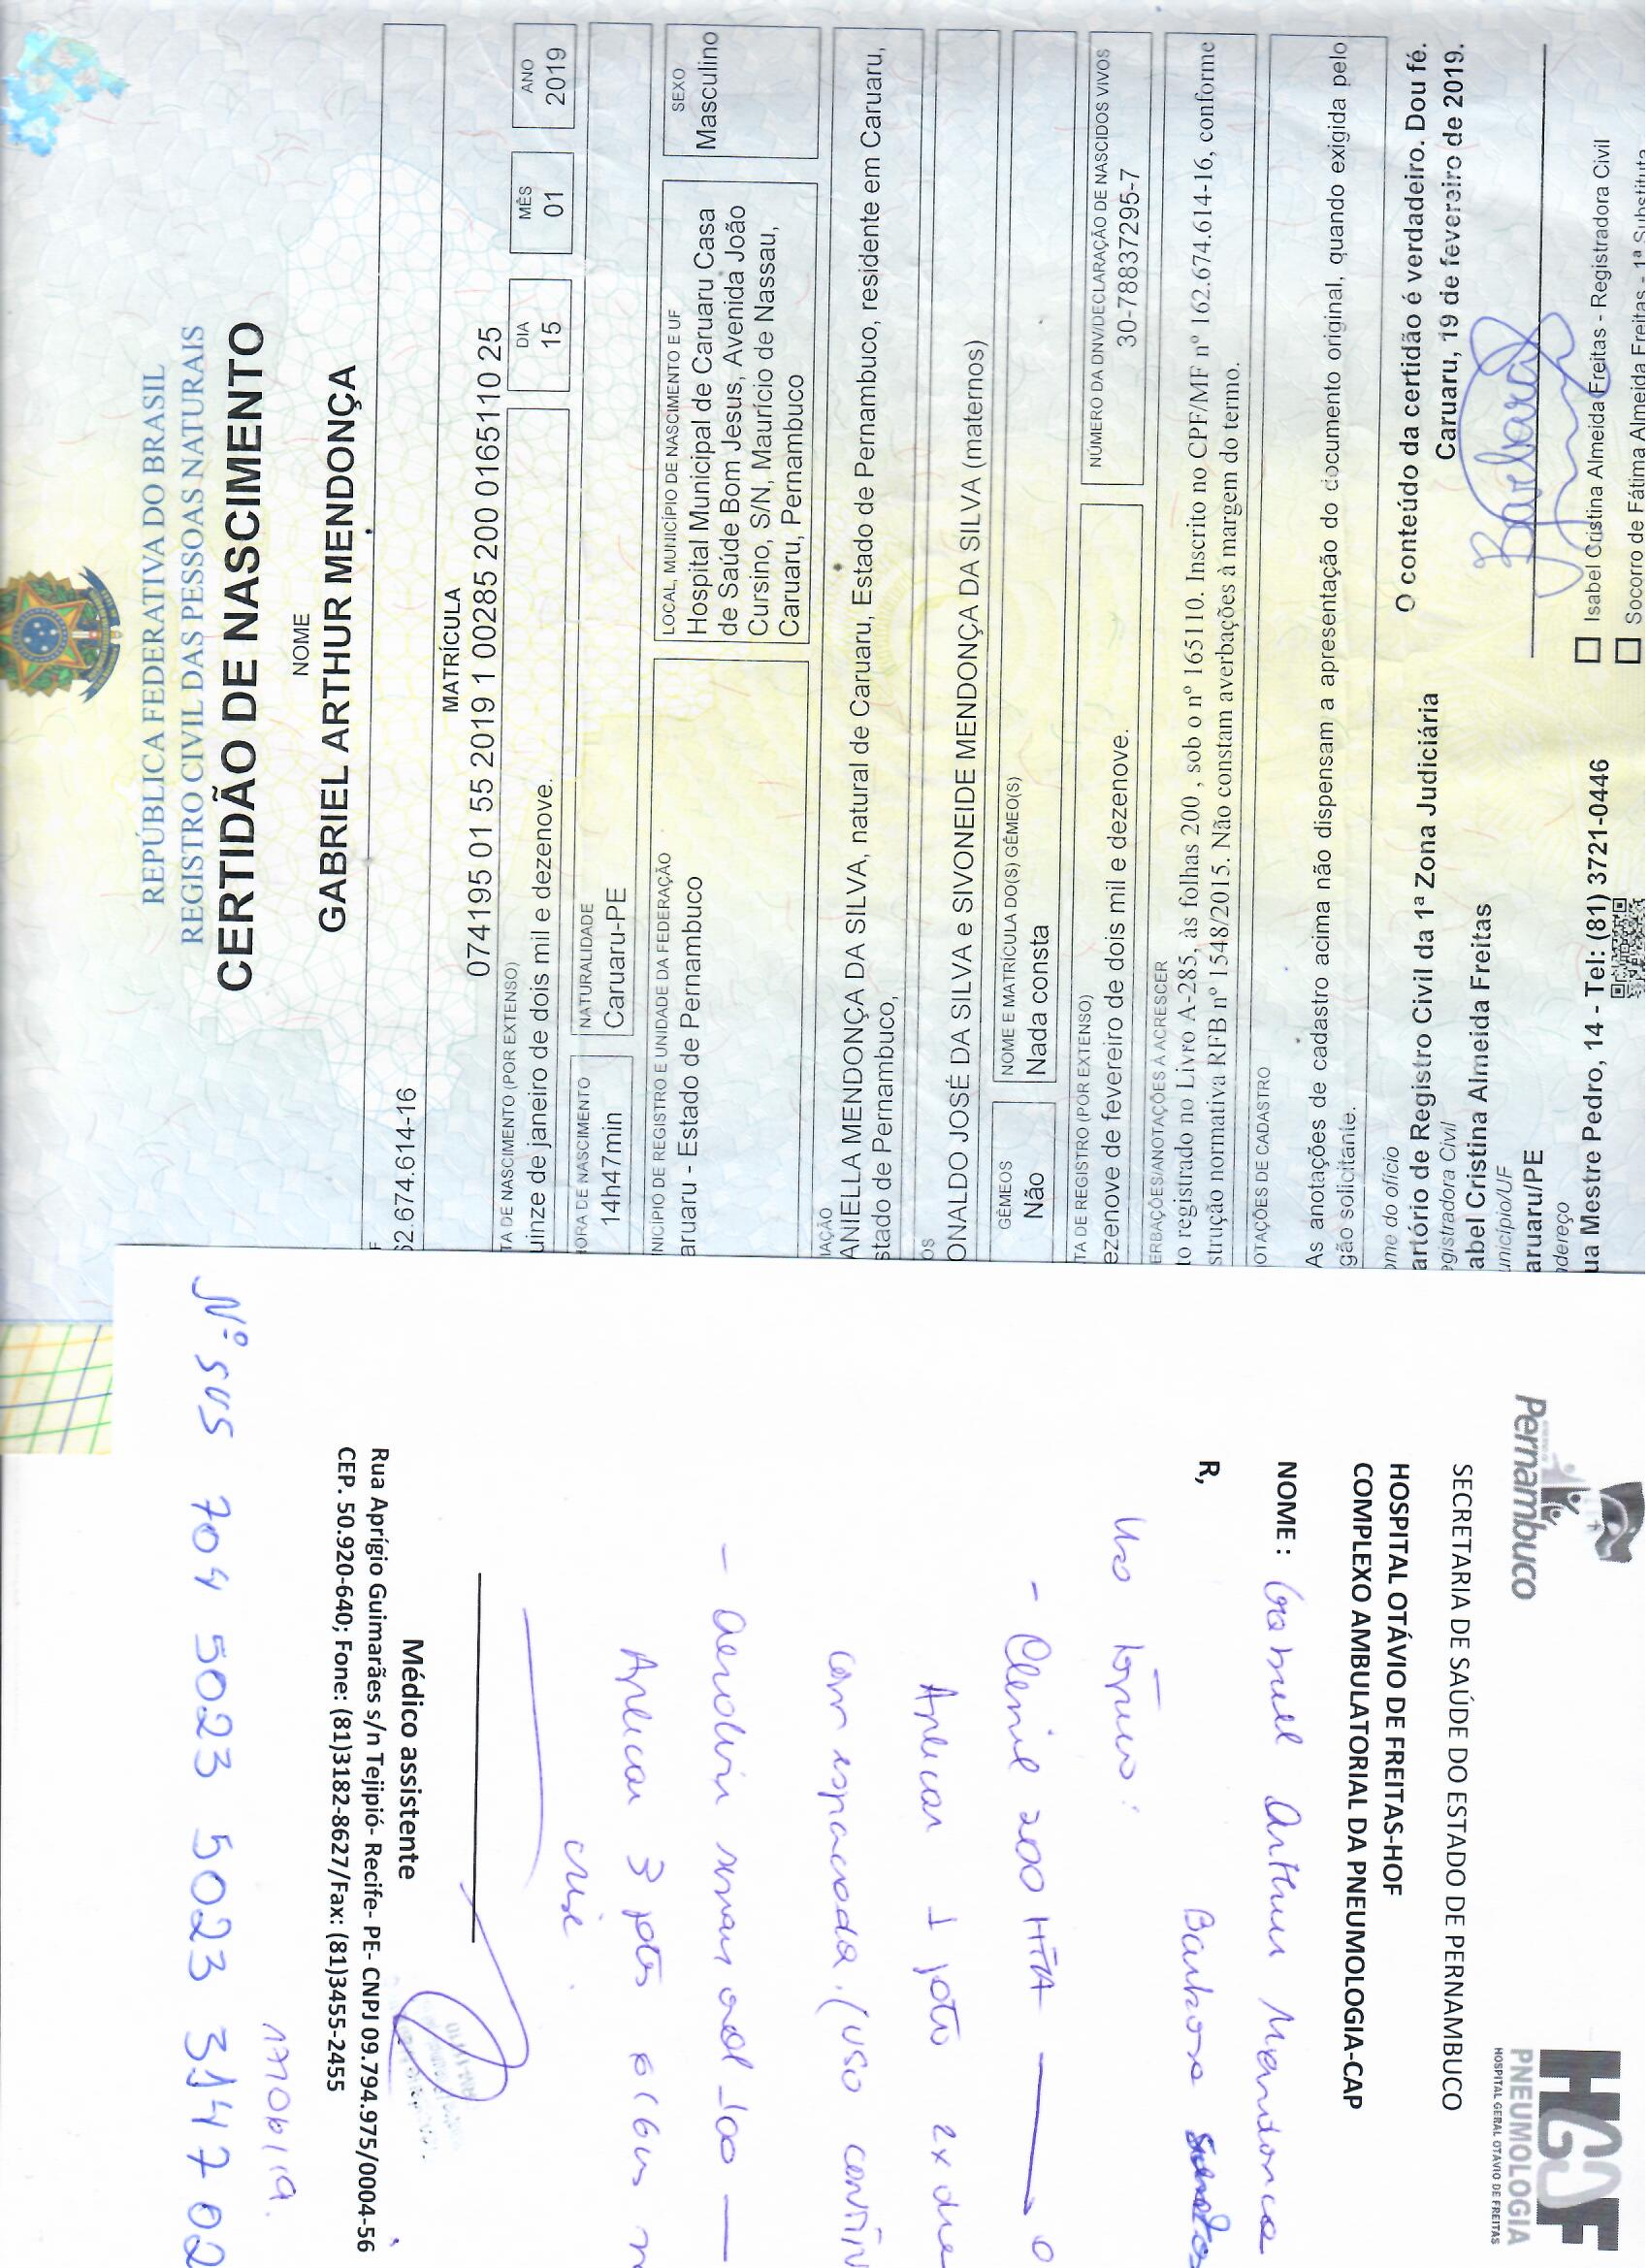 REPÚBLICA FEDERATIVA DO BRASIL
REGISTRO CIVIL DAS PESSOAS NATURAIS
CERTIDÃO DE NASCIMENTO
NOME
GABRIEL ARTHUR MENDONÇA
F
62.674.614-16
MATRÍCULA
074195 01 55 2019 1 00285 200 0165110 25
TA DE NASCIMENTO (POR EXTENSO)
uinze de janeiro de dois mil e dezenove.
DIA
15
MÊS
01
ANO
2019
ORA DE NASCIMENTO
14h47min
NATURALIDADE
Caruaru-PE
NICÍPIO DE REGISTRO E UNIDADE DA FEDERAÇÃO
aruaru - Estado de Pernambuco
LOCAL, MUNICÍPIO DE NASCIMENTO E UF
Hospital Municipal de Caruaru Casa
de Saúde Bom Jesus, Avenida João
Cursino, S/N, Maurício de Nassau,
Caruaru, Pernambuco
SEXO
Masculino
IAÇÃO
ANIELLA MENDONÇA DA SILVA, natural de Caruaru, Estado de Pernambuco, residente em Caruaru,
stado de Pernambuco,
ÓS
ONALDO JOSÉ DA SILVA e SIVONEIDE MENDONÇA DA SILVA (maternos)
GÊMEOS
Não
NOME E MATRÍCULA DO(S) GÊMEO(S)
Nada consta
TA DE REGISTRO (POR EXTENSO)
ezenove de fevereiro de dois mil e dezenove.
NÚMERO DA DNV/DECLARAÇÃO DE NASCIDOS VIVOS
30-78837295-7
ERBAÇÕES/ANOTAÇÕES A ACRESCER
to registrado no Livro A-285, às folhas 200 , sob o nº 165110. Inscrito no CPF/MF nº 162.674.614-16, conforme
strução normativa RFB nº 1548/2015. Não constam averbações à margem do termo.
OTAÇÕES DE CADASTRO
As anotações de cadastro acima não dispensam a apresentação do documento original, quando exigida pelo
gão solicitante.
ome do ofício
artório de Registro Civil da 1ª Zona Judiciária
egistradora Civil
abel Cristina Almeida Freitas
unicípio/UF
aruaru/PE
ndereço
ua Mestre Pedro, 14 - Tel: (81) 3721-0446
O conteúdo da certidão é verdadeiro. Dou fé.
Caruaru, 19 de fevereiro de 2019.
Isabel Cristina Almeida Freitas - Registradora Civil
Socorro de Fátima Almeida Freitas - 1ª Substituta
Pernambuco
HOF
PNEUMOLOGIA
HOSPITAL GERAL OTÁVIO DE FREITAS
SECRETARIA DE SAÚDE DO ESTADO DE PERNAMBUCO
HOSPITAL OTÁVIO DE FREITAS-HOF
COMPLEXO AMBULATORIAL DA PNEUMOLOGIA-CAP
NOME : Gabriell Arthur Mendonca
Barbosa
R,
Uso tópico:
- Clenil 200 HFA
Aplicar 1 jato 2x dia
com espaçador. (uso contín
- Aerolin spray oral 100
Aplicar 3 jatos 6/6hs n
crise.
Médico assistente
Rua Aprígio Guimarães s/n Tejipió- Recife- PE- CNPJ 09.794.975/0004-56
CEP. 50.920-640; Fone: (81)3182-8627/Fax: (81)3455-2455
17/06/19.
Nº SUS 704 5023 5023 3147 02